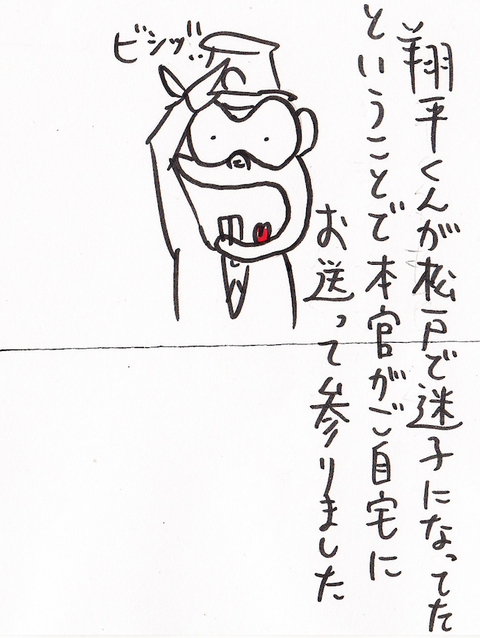 翔平くんが松戸で迷子になってた
ということで本官がご自宅に
お送って参りました
ビシッ!!